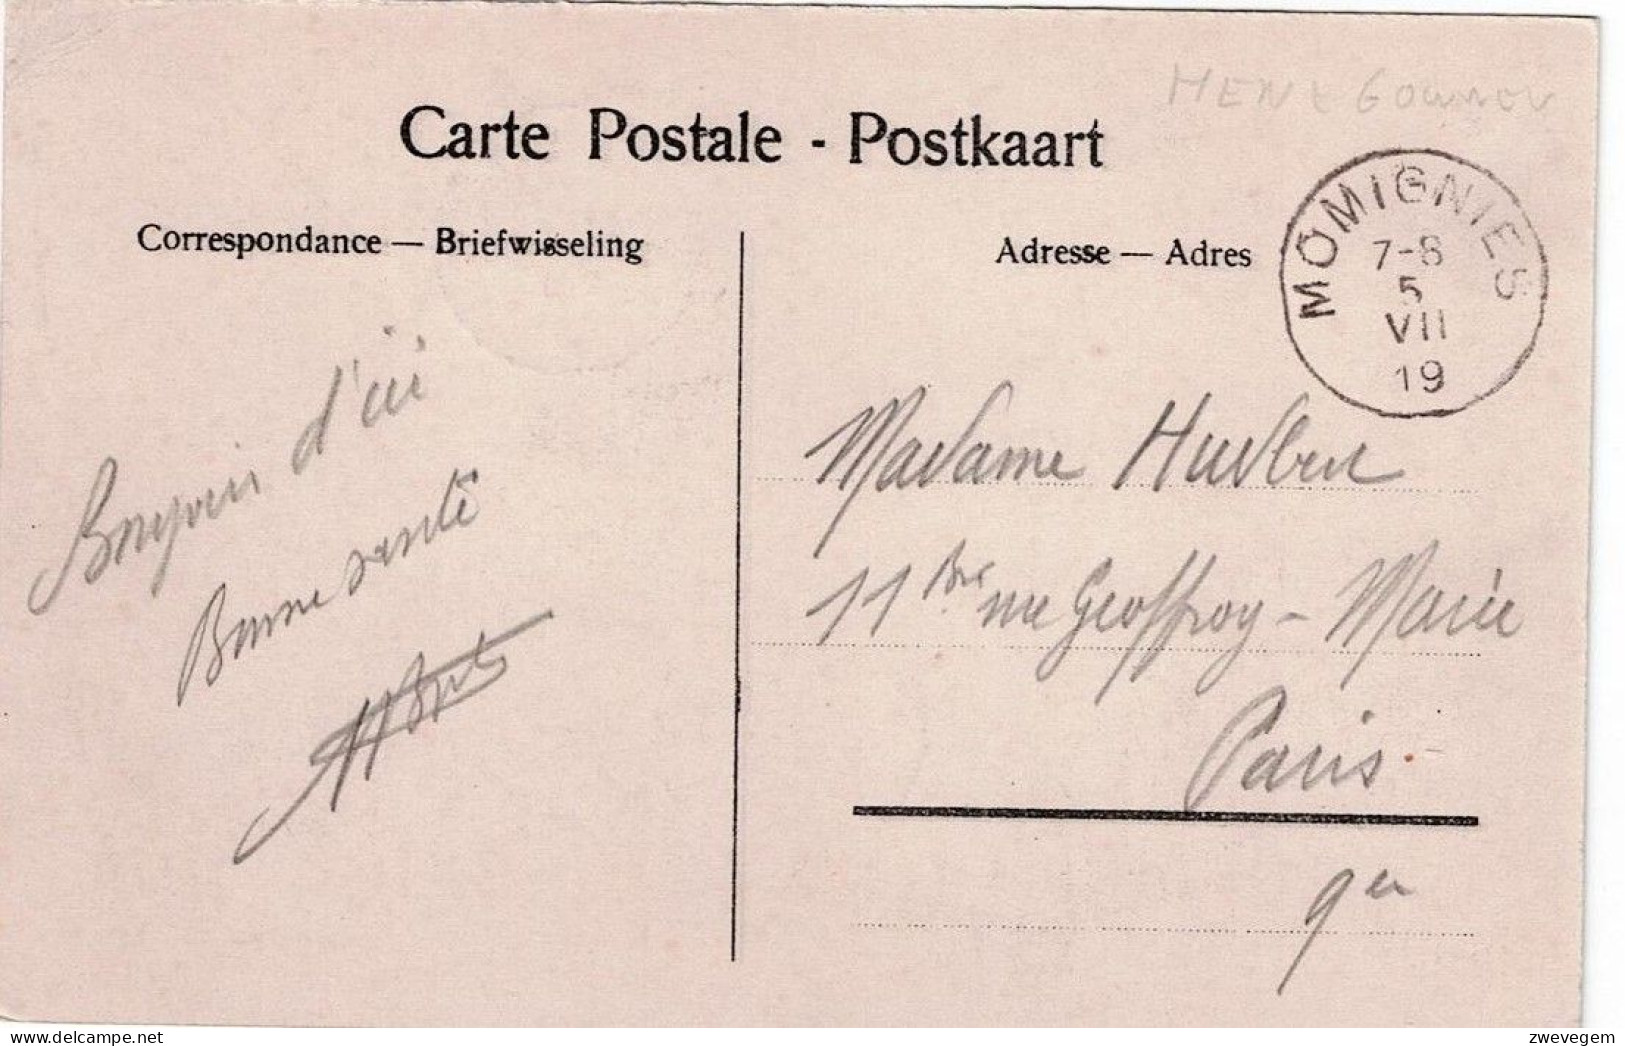 Carte Postale - Postkaart
Correspondance — Briefwisseling
Adresse — Adres
MOMIGNIES
7-8
5
VII
19
Bonjour d'ici
Bonne santé
Madame
11 Bis rue Geoffroy - Marie
Paris
9e
https://www.delcampe.net
zwevegem